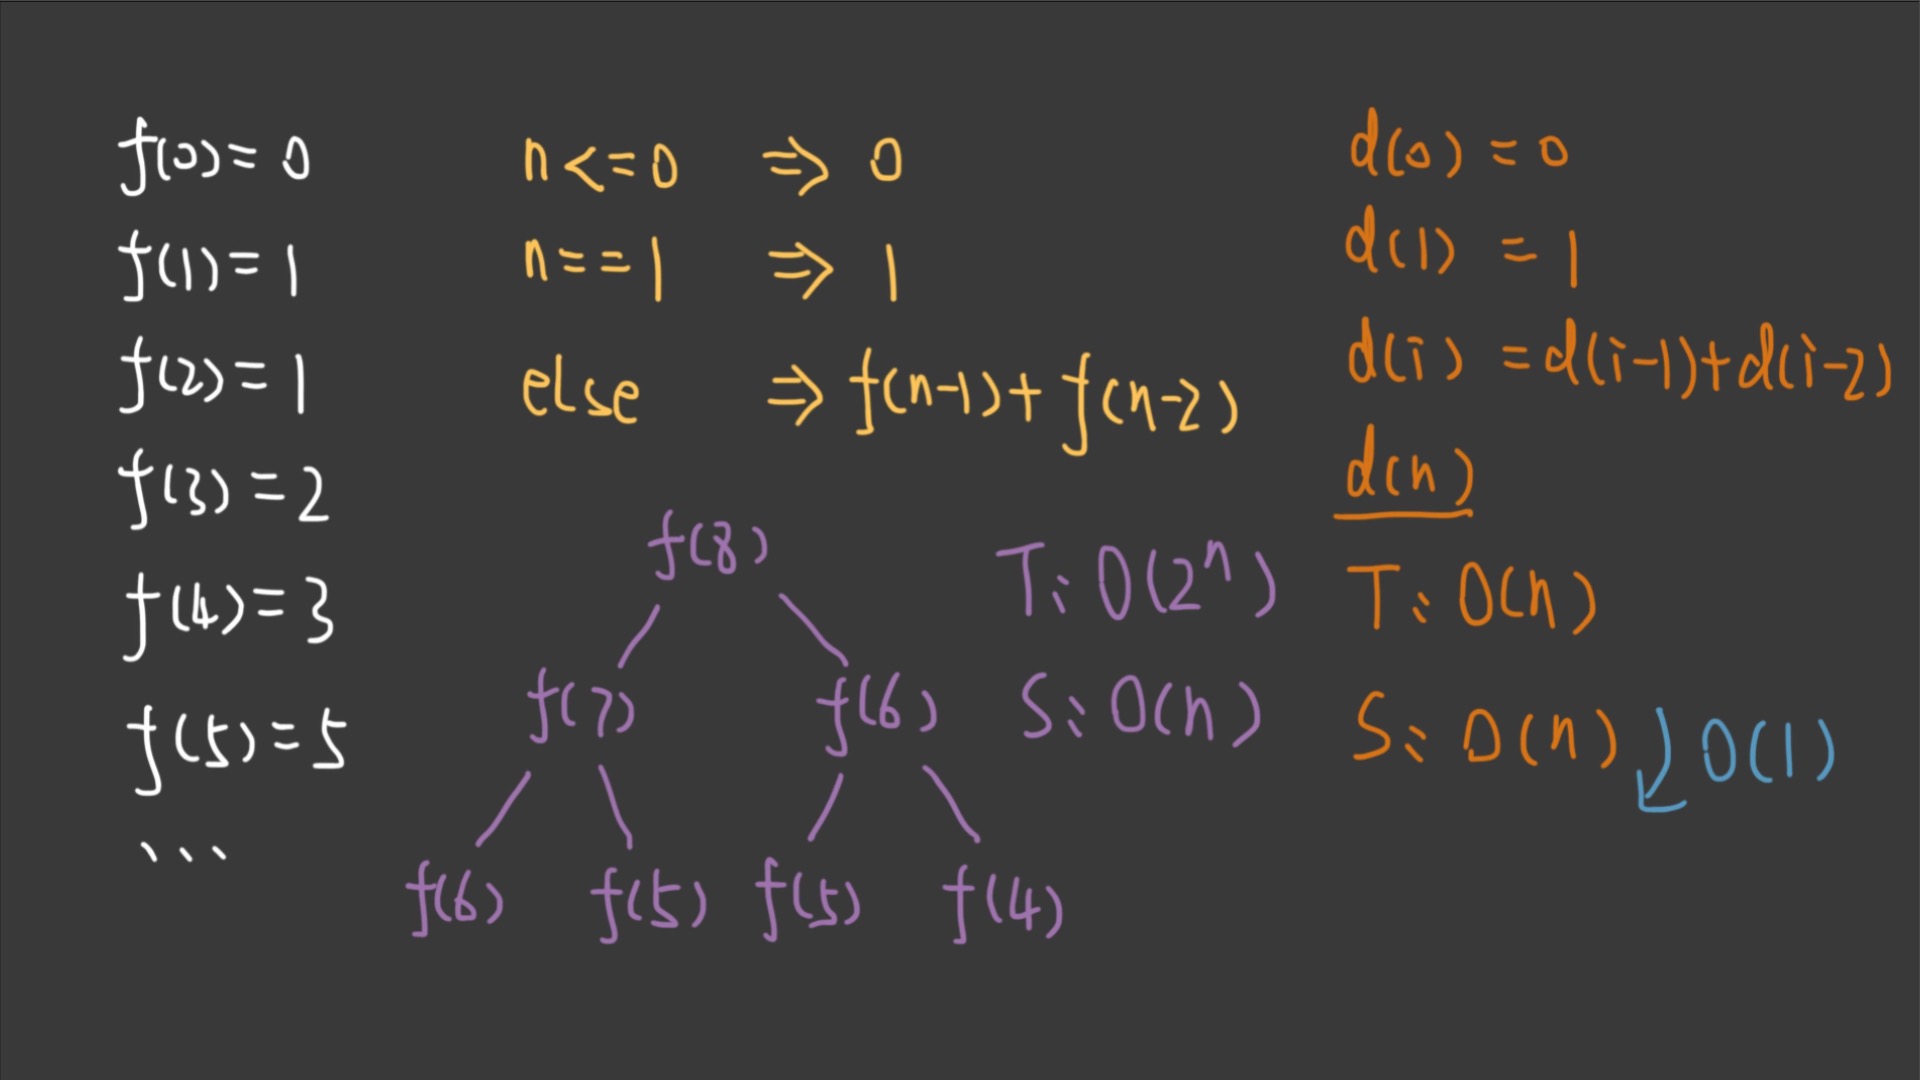 f(0)=0
f(1)=1
f(2)=1
f(3)=2
f(4)=3
f(5)=5
...
n<=0 => 0
n==1 => 1
else => f(n-1)+f(n-2)
f(8)
f(7) f(6)
f(6) f(5) f(5) f(4)
T: O(2ⁿ)
S: O(n)
d(0) = 0
d(1) = 1
d(i) = d(i-1)+d(i-2)
d(n)
T: O(n)
S: O(n) O(1)